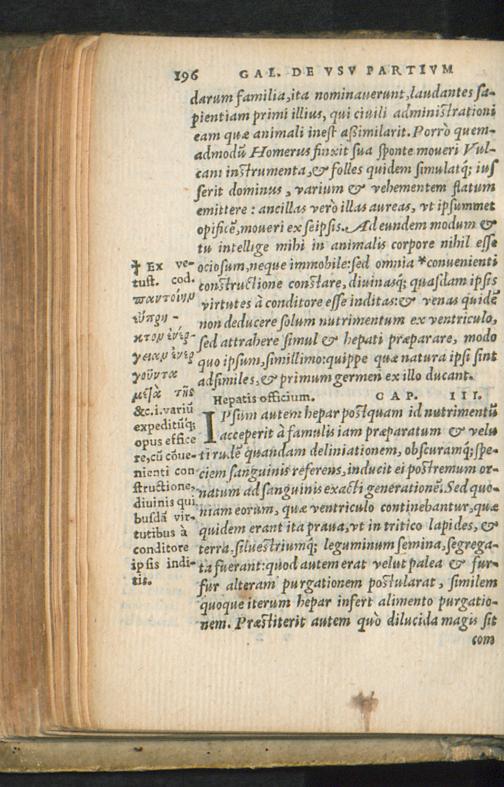 196 GAL. DE VSV PARTIVM
darum familia, ita nominauerunt, laudantes sa-
pientiam primi illius, qui ciuili administrationi
eam quæ animali inest aßimilarit. Porrò quem-
admodũ Homerus finxit sua sponte moueri Vul-
cani instrumenta, & folles quidem simulatq; ius
serit dominus, varium & vehementem flatum
emittere: ancillas verò illas aureas, vt ipsummet
opificẽ, moueri ex seipsis. Ad eundem modum &
tu intellige mihi in animalis corpore nihil esse
ociosum, neque immobile: sed omnia *conuenienti
constructione constare, diuinasq; quasdam ipsis
virtutes à conditore esse inditas: & venas quidẽ
non deducere solum nutrimentum ex ventriculo,
sed attrahere simul & hepati præparare, modo
quo ipsum, simillimo: quippe quæ natura ipsi sint
adsimiles, & primum germen ex illo ducant.
Hepatis officium. CAP. III.
IPsum autem hepar postquam id nutrimentũ
acceperit à famulis iam præparatum & velu
ti rudẽ quandam deliniationem, obscuramq; spe-
ciem sanguinis referens, inducit ei postremum or-
natum ad sanguinis exacti generationẽ. Sed quo-
niam eorum, quæ ventriculo continebantur, quæ
quidem erant ita praua, vt in tritico lapides, &
terra. siluestriumq; leguminum semina, segrega-
ta fuerant: quod autem erat velut palea & fur-
fur alteram purgationem postularat, similem
quoque iterum hepar infert alimento purgatio-
nem. Præstiterit autem quò dilucida magis sit
com
✝ Ex ve-
tust. cod.
&c.i. variũ
expeditũq;
opus effice
re, cũ cõue-
nienti con
structione,
diuinis qui
busdã vir-
tutibus à
conditore
ipsis indi-
tis.